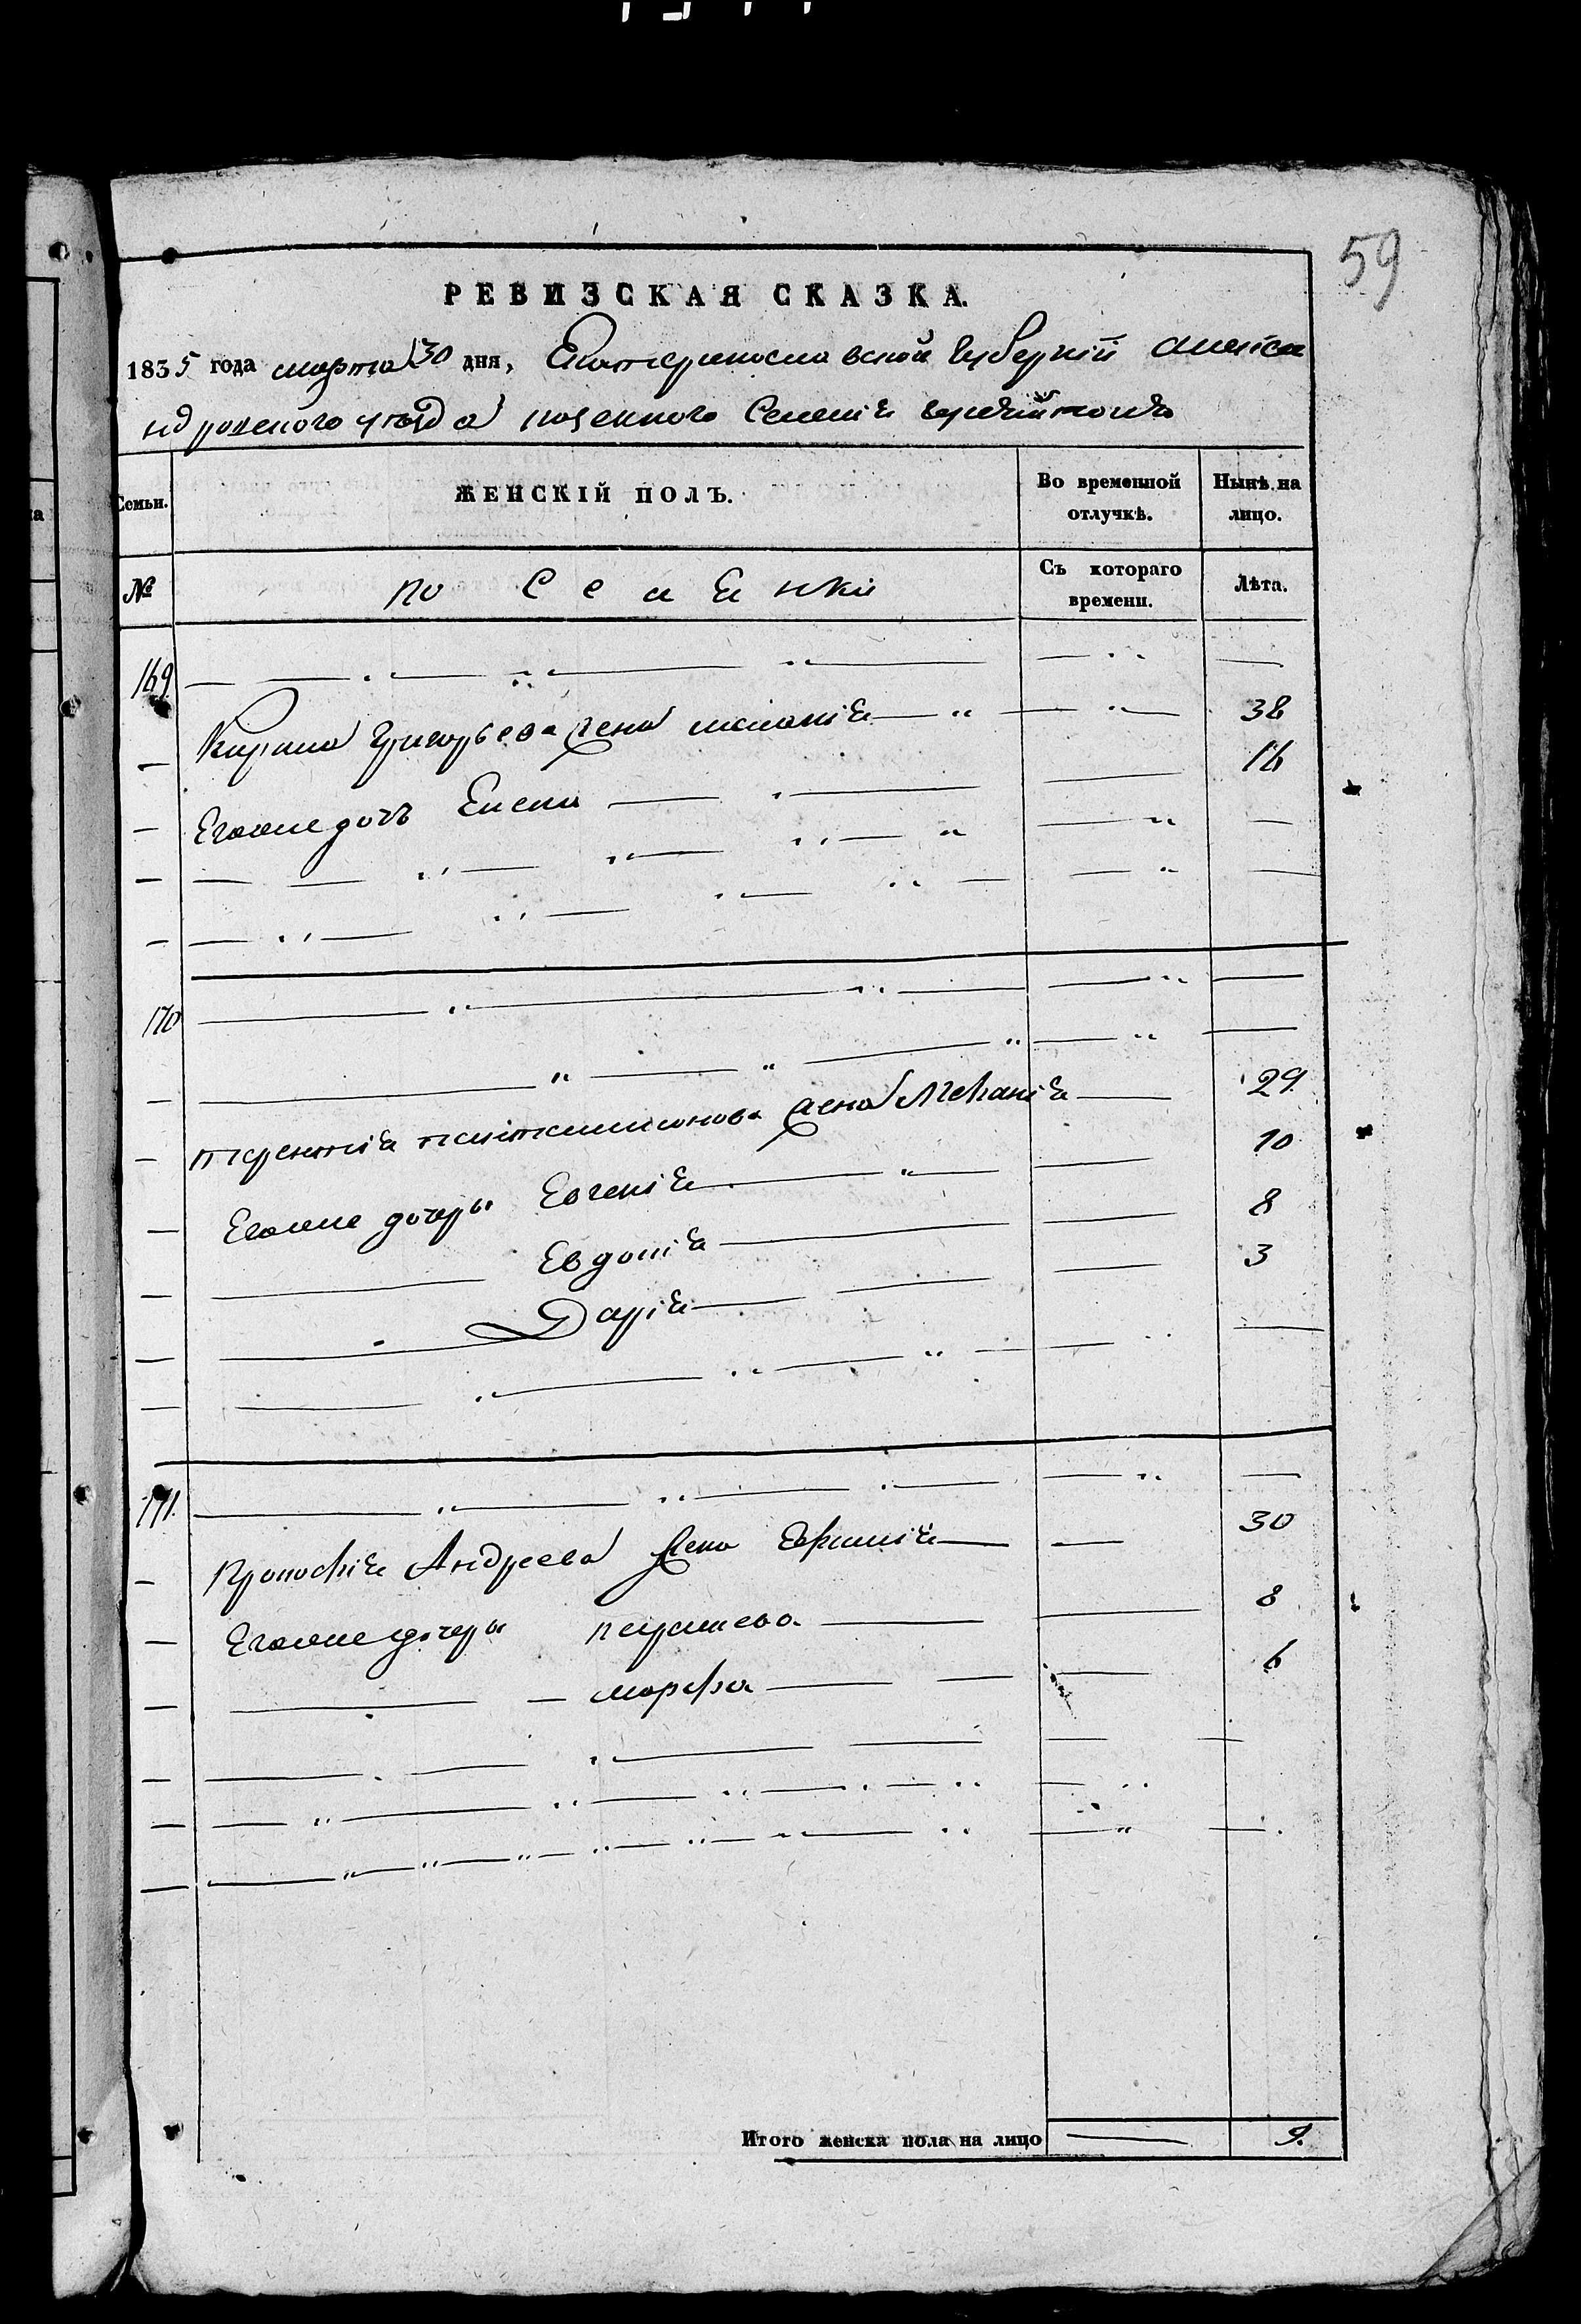 59
РЕВИЗСКАЯ СКАЗКА.
1835 года марта 30 дня, Екатеринославской Губернии Алекса
ндровского уезда казенного Селения
Семьи. ЖЕНСКІЙ ПОЛЪ. Во временной отлучкѣ. Нынѣ на лицо.
№ Поселянки Съ котораго времени. Лѣта.
169
Кирила Григорьева жена Меланія 38
Егоже дочъ Елена 16
170
терентія жена Меланія 29
Егоже дочери Евгенія 10
Евдокія 8
Дарія 3
171.
Прокофія Андреева жена Ефимія 30
Егоже дочери 8
марфа 6
Итого женска пола на лицо 9.